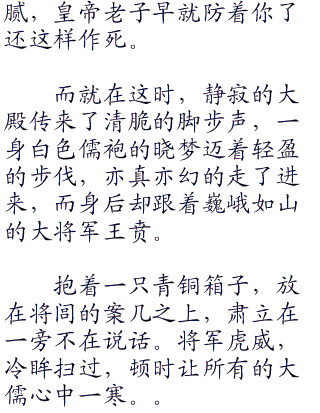 腻，皇帝老子早就防着你了
还这样作死。
而就在这时，静寂的大
殿传来了清脆的脚步声，一
身白色儒袍的晓梦迈着轻盈
的步伐，亦真亦幻的走了进
来，而身后却跟着巍峨如山
的大将军王贲。
抱着一只青铜箱子，放
在将闾的案几之上，肃立在
一旁不在说话。将军虎威，
冷眸扫过，顿时让所有的大
儒心中一寒。。